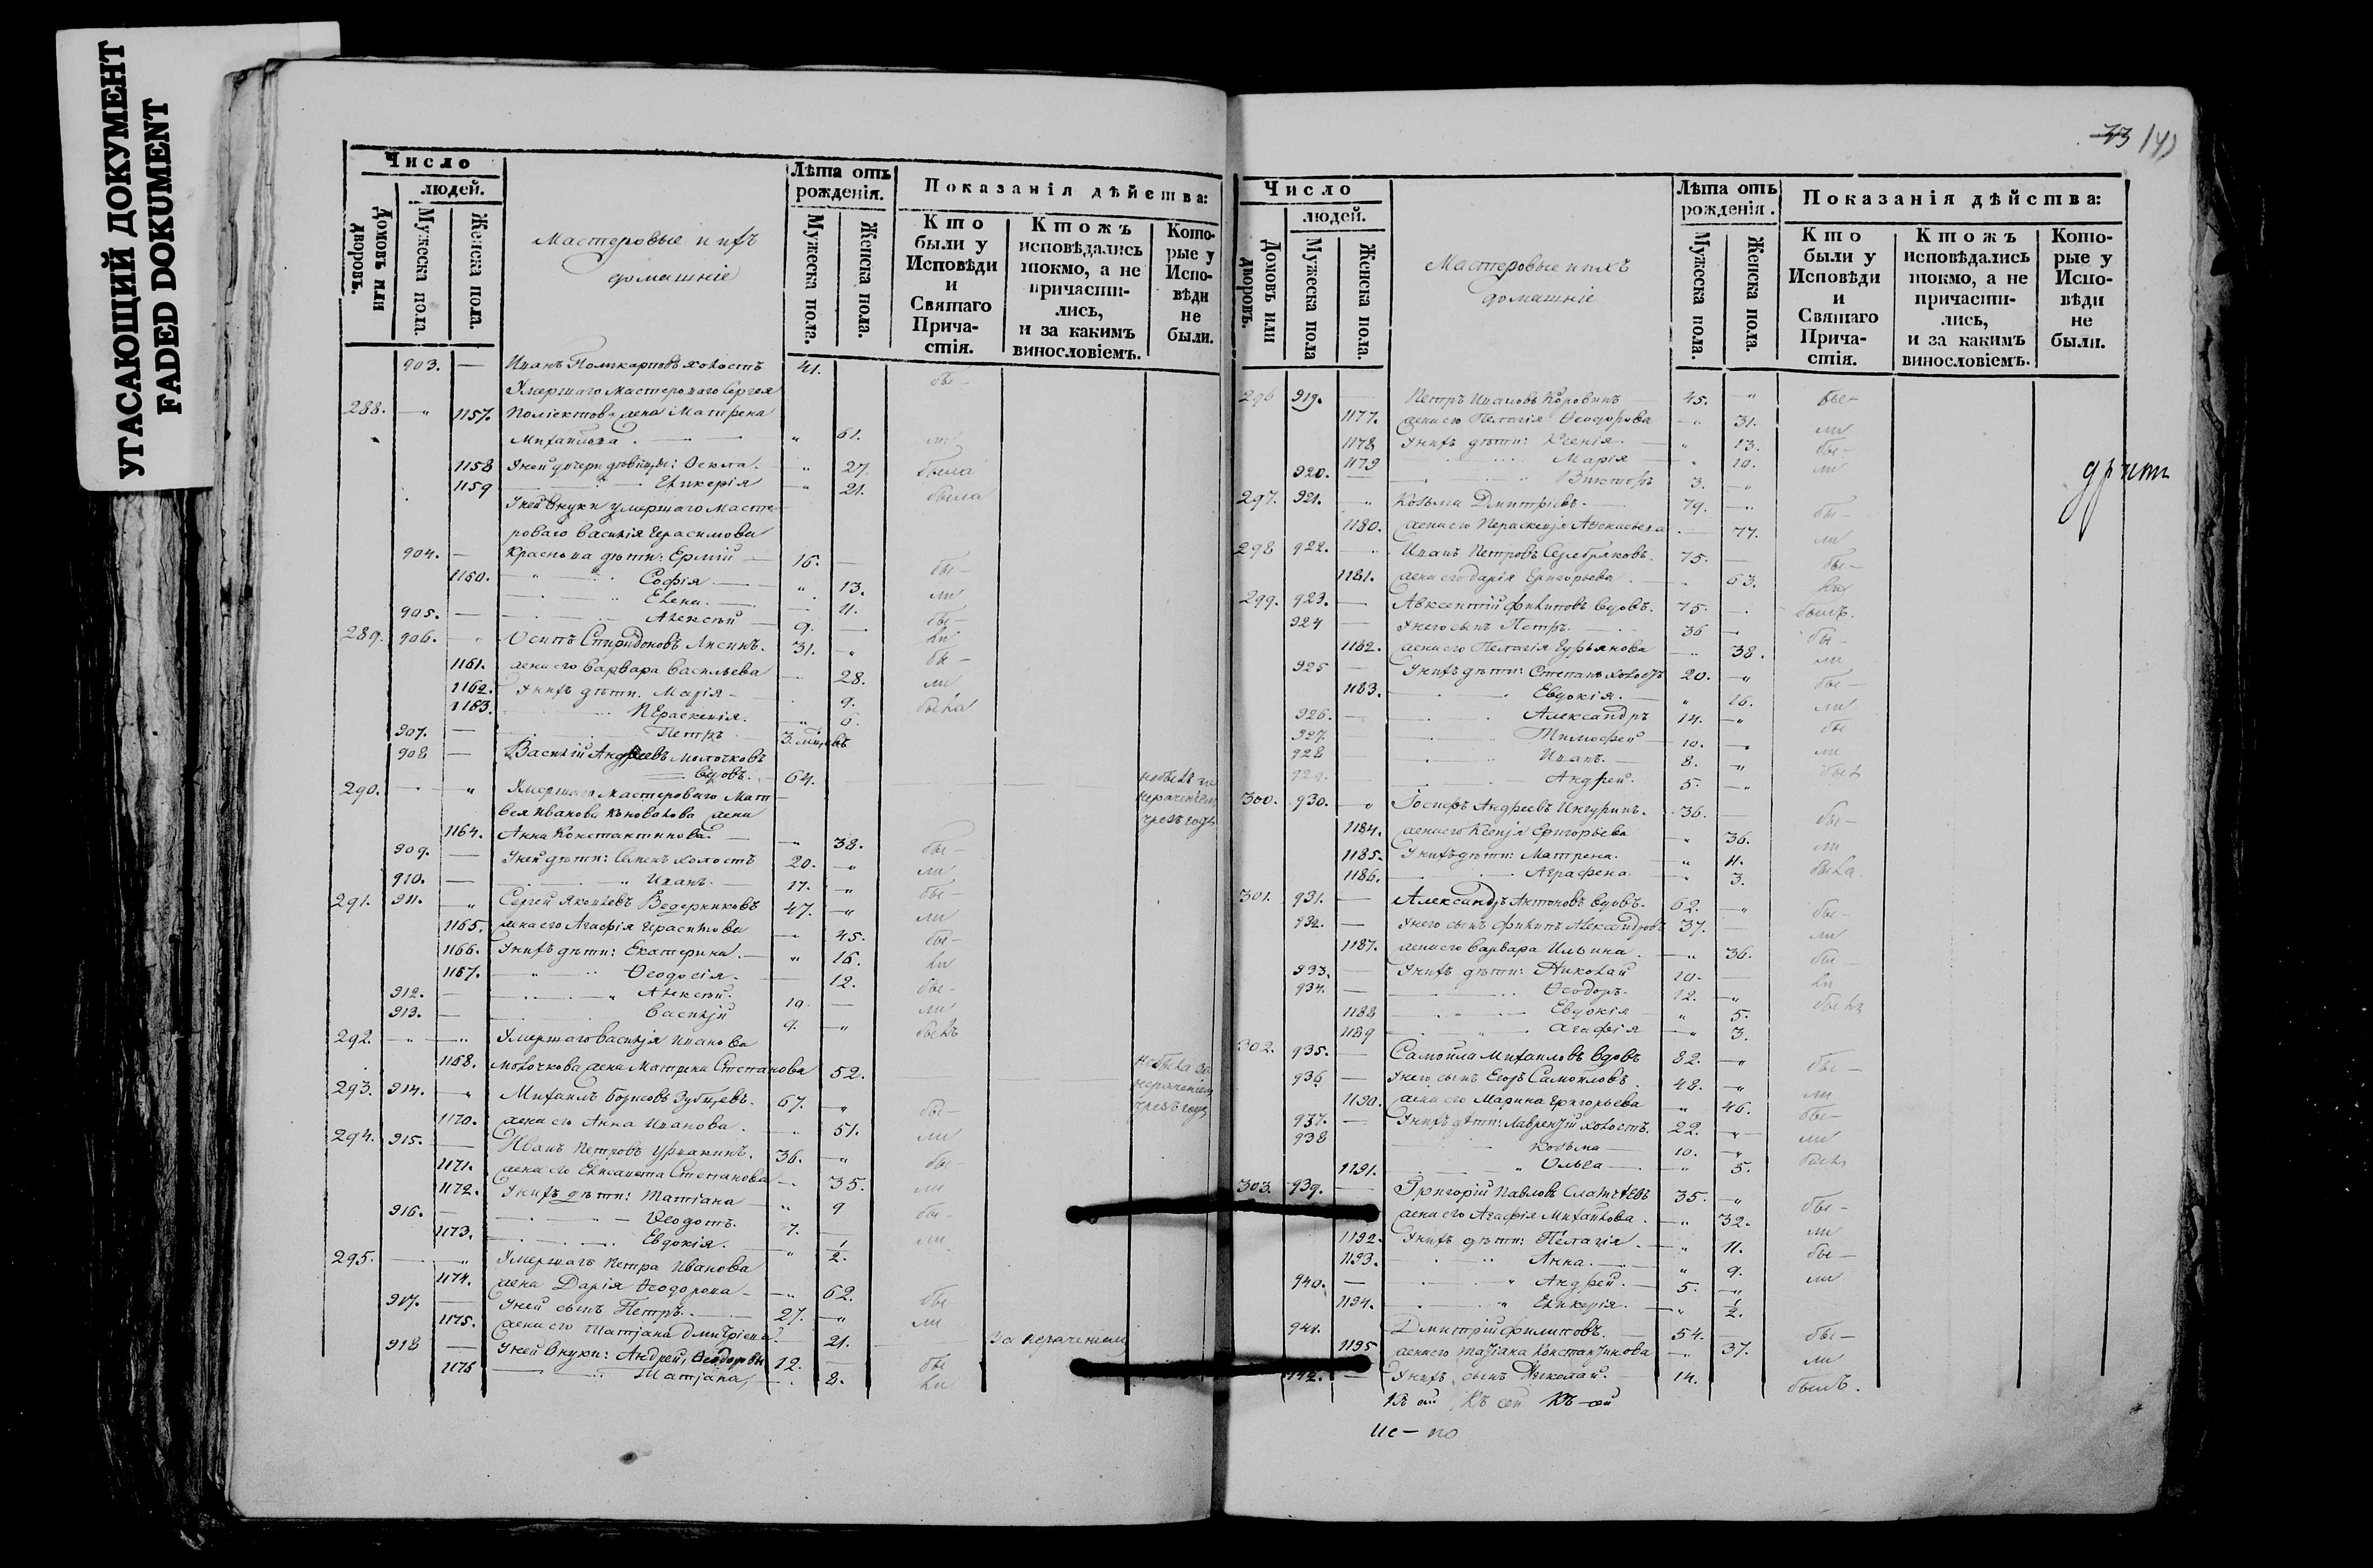 УГАСАЮЩИЙ ДОКУМЕНТ
FADED DOKUMENT
Число
людей.
Домовъ или дворовъ.
Мужеска пола.
Женска пола.
Мастеровые и ихъ
домашніе
Лѣта отъ рожденія.
Мужеска пола.
Женска пола.
Показанія дѣйства:
Кто были у Исповѣди и Святаго Причастія.
Ктожъ исповѣдались токмо, а не причастились, и за какимъ винословіемъ.
Которые у Исповѣди не были.
903. — Иванъ Поликарповъ холостъ 41. бы-
Умершаго Мастероваго Сергея
288. — " 1157. Поліектова жена Матрена
Михаилова. " 61. ли
1158 У ней дочери дѣвицы: Оекла. " 27. была
1159 Гликерія " 21. была
У ней внуки умершаго Масте-
роваго Василія Герасимова
904. — дѣти: Ермій 16. — бы-
1160. Софія " 13. ли
Елена. 11. бы-
905. — Алексѣй 9. — ли
289. 906. — Осипъ Спиридоновъ Лисинъ. 31. " бы-
1161. жена его Варвара Васильева 28. ли
1162. У нихъ дѣти. Марія 9. была
1163. Параскевія. " 6.
907. — Петръ 3. мѣсяцъ
908 — Василій Андреевъ Молочковъ
вдовъ. 64. не былъ за
290. — " Умершаго Мастероваго Мат- нераченіем
вея Иванова Коновалова жена чрезъ годъ
1164. Анна Константинова. " 38. бы-
909. — У ней дѣти: Семенъ холостъ 20. " ли
910. — Иванъ. 17. " бы-
291. 911. — Сергей Яковлевъ Ведерниковъ 47. " ли
1165. жена его Агафія 45. бы-
1166. У нихъ дѣти: Екатерина. " 16. ли
1167. Оеодосія. 12. бы-
912. — Алексѣй. 10. — ли
913. — Василій 9. " былъ
292. " — " Умершаго Василія Иванова
1168. Молочкова жена Матрена Степанова 52. не была за нераченіем чрезъ годъ
293. 914. — Михаилъ Борисовъ Зубцевъ. 67. " бы-
1170. жена его Анна Иванова. 51. ли
294. 915. — Иванъ Петровъ 36. " бы-
1171. жена его Елисавета Степанова 35. ли
1172. У нихъ дѣти: Татіана " 9 бы-
916. — Оеодотъ. 7. ли
1173. Евдокія. " 1/2.
295. — " Умершаго Петра Иванова
1174. жена Дарія Оеодорова " 62. бы
917. — У ней сынъ Петръ. 27. " ли
1175. жена его Татіана Дмитріева. 21. — за нераченіем
918 — У ней внуки: Андрей, Оеодоровы 12. — бы
1176 Татіана 8. ли
33 141
Число
людей.
Домовъ или дворовъ.
Мужеска пола
Женска пола.
Мастеровые и ихъ
домашніе
Лѣта отъ рожденія.
Мужеска пола.
Женска пола.
Показанія дѣйства:
Кто были у Исповѣди и Святаго Причастія.
Ктожъ исповѣдались токмо, а не причастились, и за какимъ винословіемъ.
Которые у Исповѣди не были.
296 919. Петръ Ивановъ Коровинъ 45. " бы-
1177. жена его Пелагія Оеодорова " 31. ли
1178 У нихъ дѣти: Ксенія. " 13. бы-
1179 Марія " 10. ли
920. — Викторъ 3. "
297. 921. " Козьма Дмитріевъ. 79. " бы-
1180. жена его Параскевія 77. ли
298 922. Иванъ Петровъ Серебряковъ. 75. — бы-
1181. жена его Дарія Григорьева " 63. ли
299. 923. — Авксентій Филиповъ вдовъ. 75. былъ.
924 — У него сынъ Петръ. 36 — бы-
1182. жена его Пелагія Гурьянова " 38. ли
925 — У нихъ дѣти: Степанъ холостъ 20. " бы-
1183. Евдокія. " 16. ли
926. — Александръ 14. " бы
927. Тимофей 10. " ли
928 Иванъ. 8. " былъ
929. Андрей. 5. "
300. 930. " Іосифъ Андреевъ 36. — бы-
1184. жена его Ксенія Григорьева " 36. ли
1185. У нихъ дѣти: Матрена. " 11. была
1186. Аграфена. " 3.
301. 931. — Александръ Антоновъ вдовъ. 62. " бы-
932. — У него сынъ Филипъ Александровъ 37. — ли
1187. жена его Варвара Ильина. " 36. бы-
933. — У нихъ дѣти: Николай 10. — ли
934. — Оеодоръ. 12. " былъ
1188 Евдокія " 5.
1189 Агафія " 3.
302. 935. — Самойла Михаиловъ вдовъ 82. " бы-
936 — У него сынъ Егоръ Самойловъ 48. " ли
1190. жена его Марина Григорьева " 46. бы-
937. — У нихъ дѣти: Лаврентій холостъ. 22. " ли
938 Козьма 10. " былъ
1191. Ольга " 5.
303. 939. — Григорій Павловъ 35. " бы-
жена его Агафія Михаилова. " 32. ли
1192. У нихъ дѣти: Пелагія " 11. бы-
1193. Анна. " 9. ли
940. — Андрей. 5. "
1194. Гликерія. " 1/2.
941. Дмитрій Филиповъ. 54. — бы-
1195 жена его Татіана Константинова " 37. ли
942. — У нихъ сынъ Николай. 14. былъ.